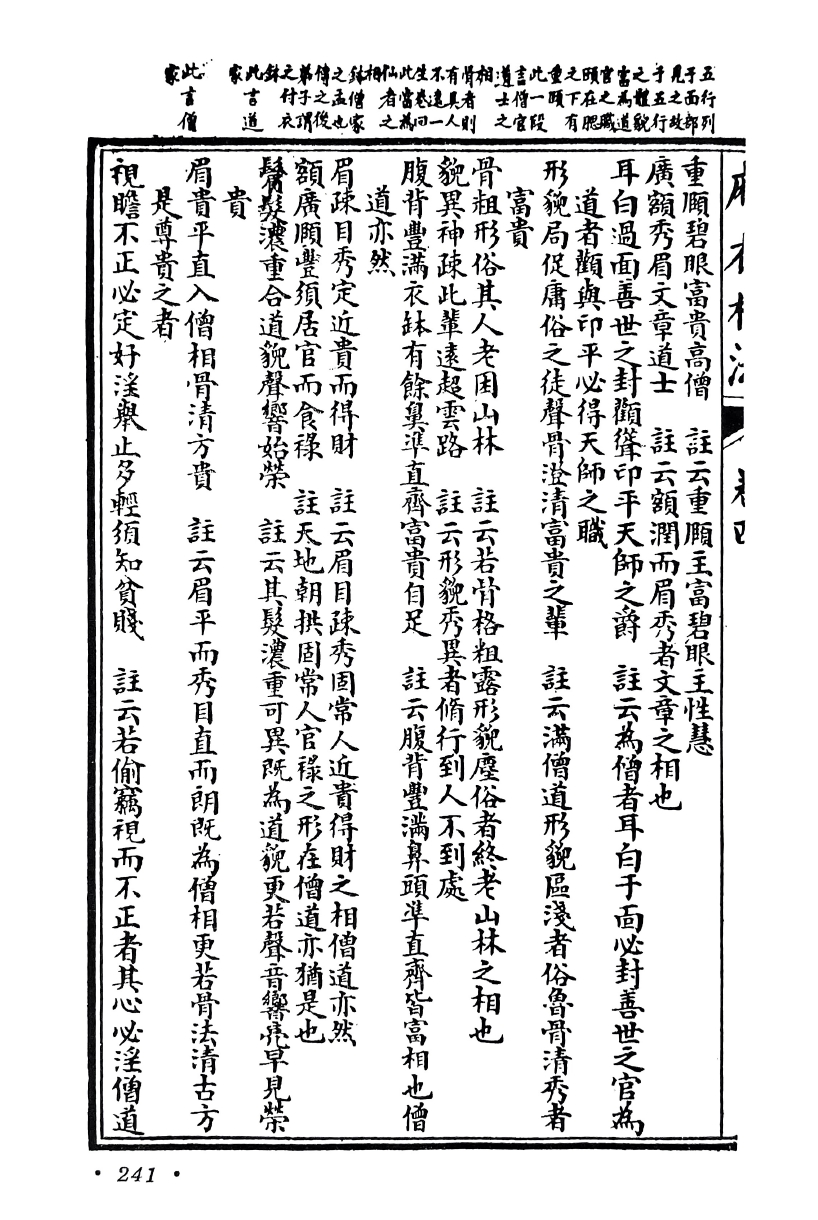 五行列
于面部
見之故
于五行
之體貌
當為道
官之職
頤在腮
之下有
重頤
此一段
言僧官
道士之
相
骨者則
有異人
不遠一
生卷回
此當為
仙者之
相
鉢僧家
之盂也
傳之後
弟子謂
之付衣
鉢
此言道
家
此言僧
家
麻衣相法
卷四
重頤碧眼富貴高僧 註云重頤主富碧眼主性慧
廣額秀眉文章道士 註云額潤而眉秀者文章之相也
耳白過面善世之封顴聳印平天師之爵 註云為僧者耳白于面必封善世之官為
道者顴與印平必得天師之職
形貌局促庸俗之徒聲骨澄清富貴之輩 註云滿僧道形貌區淺者俗魯骨清秀者
富貴
骨粗形俗其人老困山林 註云若骨格粗露形貌塵俗者終老山林之相也
貌異神疎此輩遠超雲路 註云形貌秀異者脩行到人不到處
腹背豐滿衣鉢有餘鼻準直齊富貴自足 註云腹背豐滿鼻頭準直齊皆富相也僧
道亦然
眉疎目秀定近貴而得財 註云眉目疎秀固常人近貴得財之相僧道亦然
額廣頤豐須居官而食祿 註天地朝拱固常人官祿之形在僧道亦猶是也
鬚髮濃重合道貌聲響始榮 註云其髮濃重可異既為道貌更若聲音響亮早見榮
貴
眉貴平直入僧相骨清方貴 註云眉平而秀目直而朗既為僧相更若骨法清古方
是尊貴之者
視瞻不正必定好淫舉止多輕須知貧賤 註云若偷竊視而不正者其心必淫僧道
· 241 ·